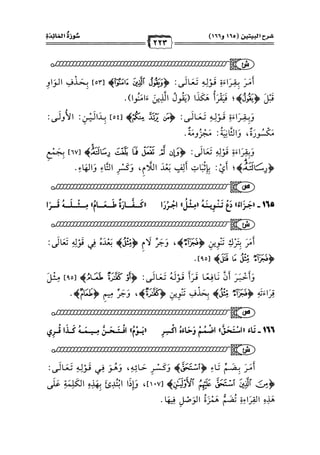 شرح البيتين (١٦٥ و١٦٦)
٢٢٣
سُورَةُ المَائِدَةِ
أَمَرَ بِقِرَاءَةِ قَوْلِهِ تَعَالَى: ﴿وَيَقُولُ ٱلَّذِينَ ءَامَنُوٓاْ﴾ [٥٣] بِحَذْفِ الوَاوِ
قَبْلَ ﴿يَقُولُ﴾؛ فَيُقْرَأُ هَكَذَا (يَقُولُ الَّذِينَ ءَامَنُوا).
وَبِقِرَاءَةِ قَوْلِهِ تَعَالَى: ﴿مَن يَرْتَدَّ مِنكُمْ﴾ [٥٤] بِدَالَيْنِ: الأُولَى:
مَكْسُورَةٌ، وَالثَّانِيَةُ: مَجْزُومَةٌ.
وَبِقِرَاءَةِ قَوْلِهِ تَعَالَى: ﴿وَإِن لَّمْ تَفْعَلْ فَمَا بَلَّغْتَ رِسَالَتَهُۥ﴾ [٦٧] بِجَمْعِ
﴿رِسَالَتَهُۥ﴾؛ أَيْ: بِإِثْبَاتِ أَلِفٍ بَعْدَ اللَّامِ، وَكَسْرِ التَّاءِ وَالهَاءِ.
١٦٥ - «جَزَاءُ» دَعْ تَنْوِينَهُ «مِثْلُ» اجْرُرَا «كَفَّارَةُ طَعَامُ» مِثْلَهُ قَرَا
أَمَرَ بِتَرْكِ تَنْوِينِ ﴿فَجَزَآءٌ﴾، وَجَرِّ لَامِ ﴿مِّثْلُ﴾ بَعْدَهُ فِي قَوْلِهِ تَعَالَى:
﴿فَجَزَآءٌ مِّثْلُ مَا قَتَلَ﴾ [٩٥].
وَأَخْبَرَ أَنَّ نَافِعًا قَرَأَ قَوْلَهُ تَعَالَى: ﴿أَوْ كَفَّٰرَةٌ طَعَامُ﴾ [٩٥] مِثْلَ
قِرَاءَتِهِ ﴿فَجَزَآءٌ مِّثْلُ﴾ بِحَذْفِ تَنْوِينِ ﴿كَفَّٰرَةٌ﴾، وَجَرِّ مِيمِ ﴿طَعَامُ﴾.
أَمَرَ بِضَمِّ تَاءِ ﴿ٱسْتَحَقَّ﴾ وَكَسْرِ حَائِهِ، وَهُوَ فِي قَوْلِهِ تَعَالَى:
﴿مِنَ ٱلَّذِينَ ٱسْتَحَقَّ عَلَيْهِمُ ٱلْأَوْلَيَٰنِ﴾ [١٠٧]، وَإِذَا ابْتُدِئَ بِهَذِهِ الكَلِمَةِ عَلَى
هَذِهِ القِرَاءَةِ تُضَمُّ هَمْزَةُ الوَصْلِ فِيهَا.